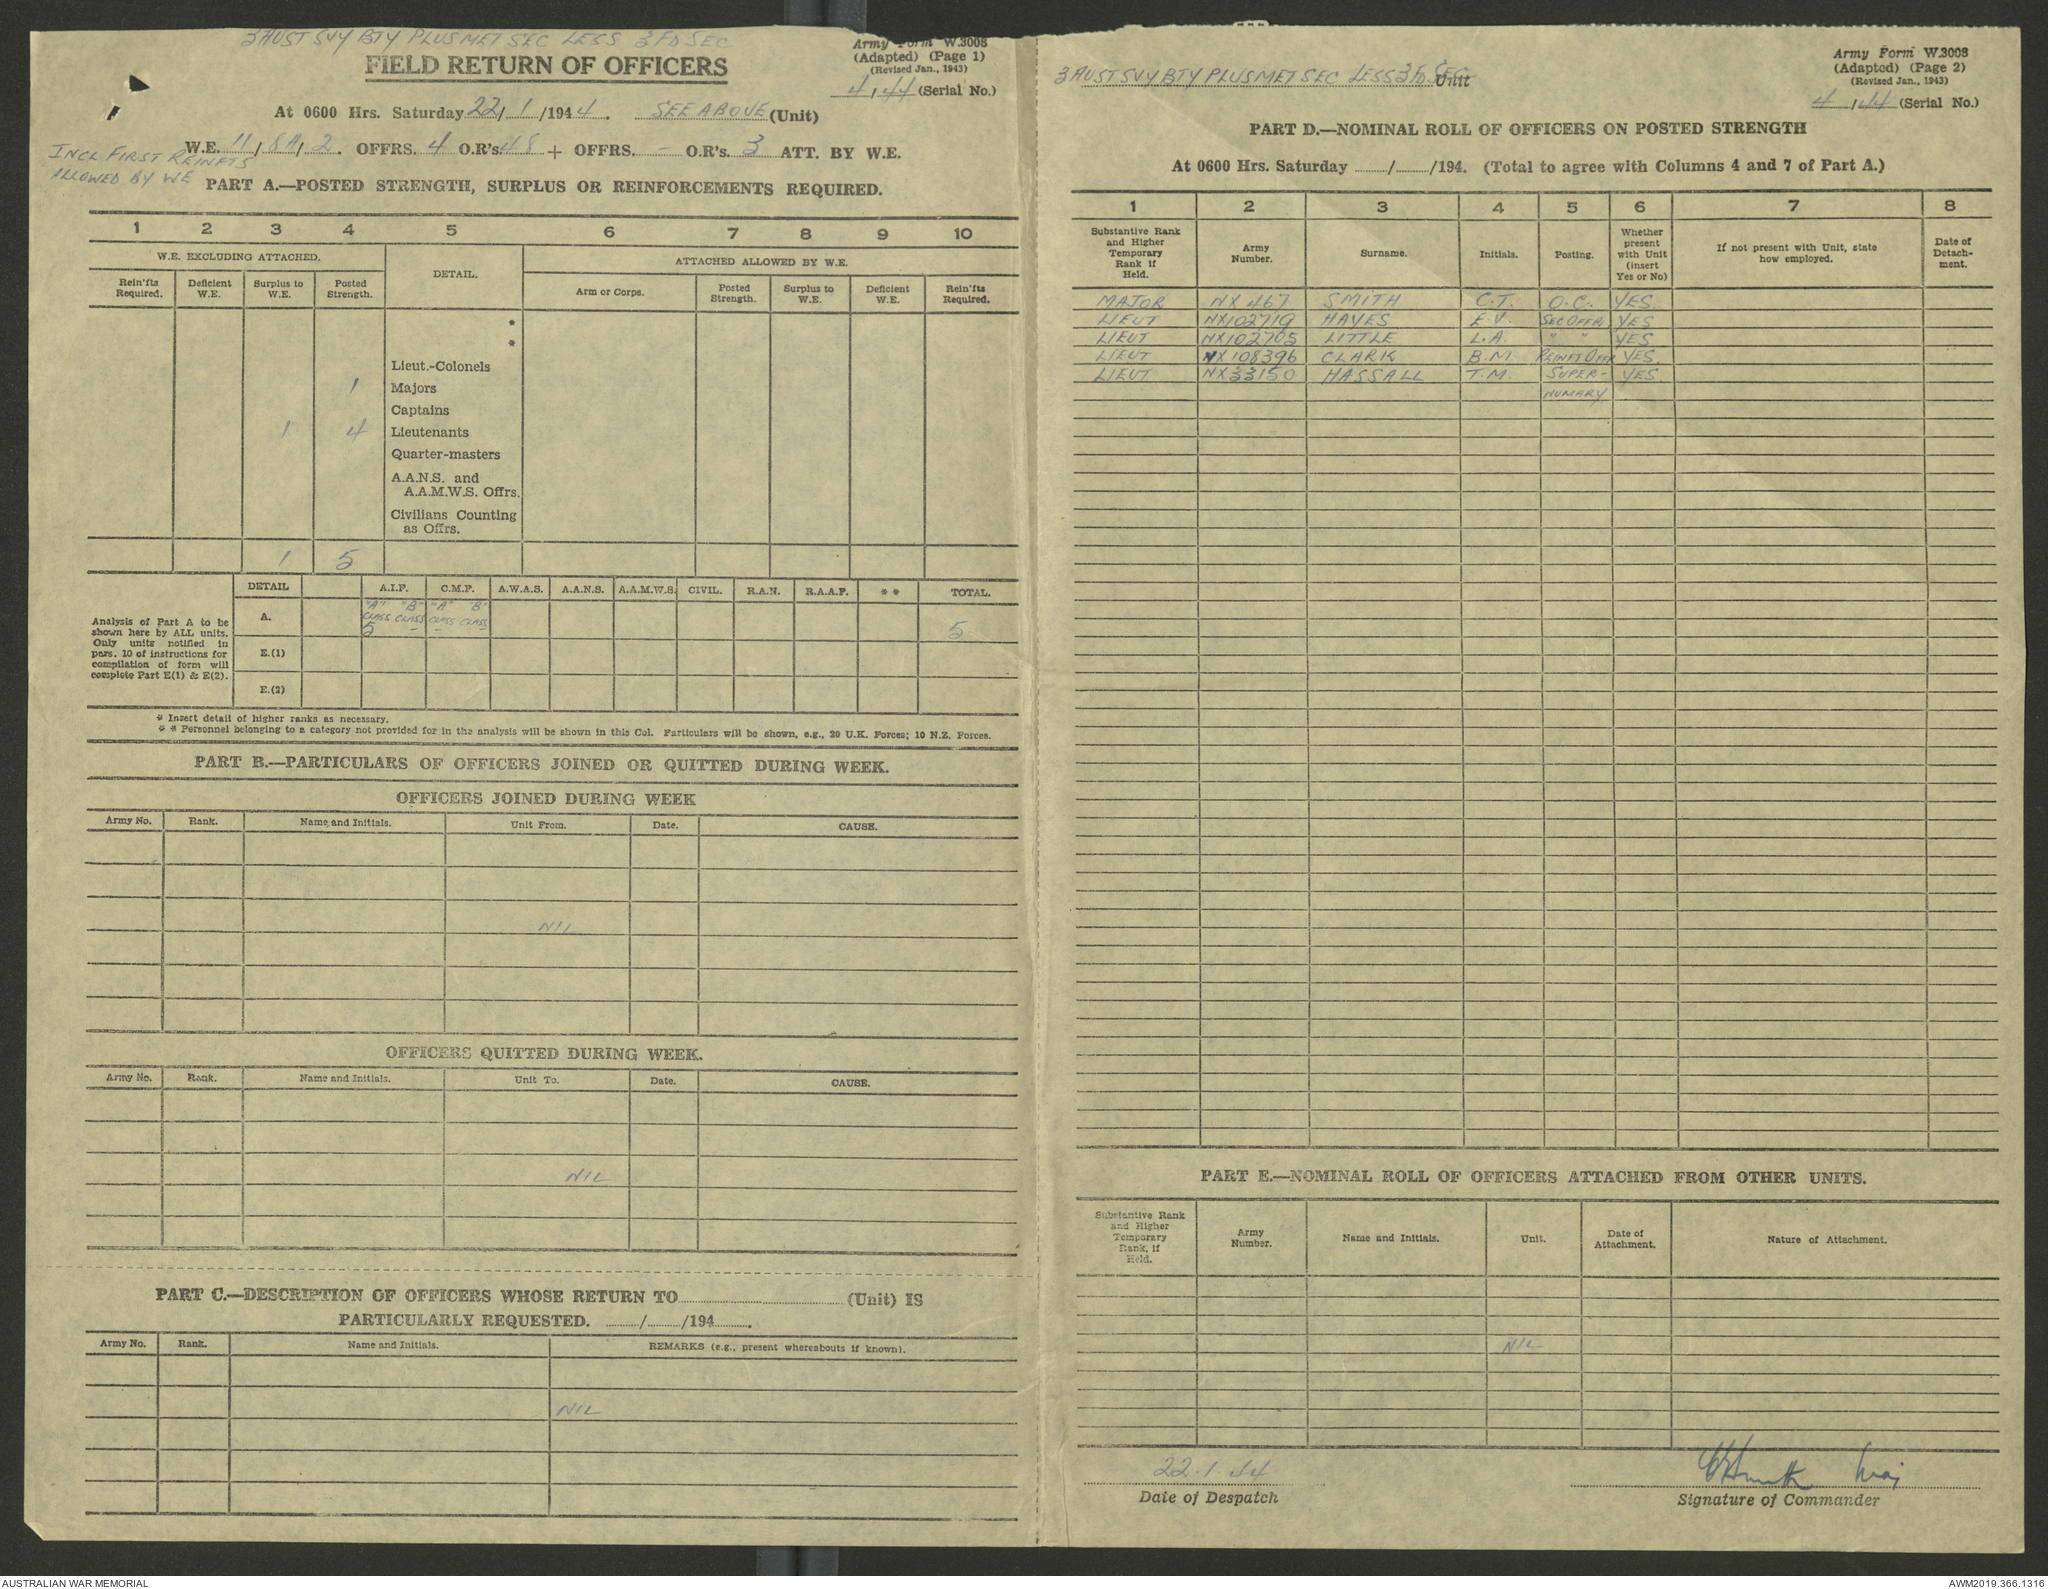 3 AUST SVY BTY PLUS MET SEC LESS 3 FD SEC
Army Form W.3008
(Adapted) (Page 1)
(Revised Jan., 1943)
4/44 (Serial No.)
FIELD RETURN OF OFFICERS
At 0600 Hrs. Saturday 22/1/1944. SEE ABOVE (Unit)
W.E. 11/8A/2. OFFRS. 4 O.R's 48 + OFFRS. - O.R's 3 ATT. BY W.E.
INCL FIRST REINFTS
ALLOWED BY WE
PART A.—POSTED STRENGTH, SURPLUS OR REINFORCEMENTS REQUIRED.
1 2 3 4 5 6 7 8 9 10
W.E. EXCLUDING ATTACHED. DETAIL. ATTACHED ALLOWED BY W.E.
Rein'fts Required. Deficient W.E. Surplus to W.E. Posted Strength. Arm or Corps. Posted Strength. Surplus to W.E. Deficient W.E. Rein'fts Required.
*
*
Lieut.-Colonels
1 Majors
Captains
1 4 Lieutenants
Quarter-masters
A.A.N.S. and
A.A.M.W.S. Offrs.
Civilians Counting
as Offrs.
1 5
DETAIL A.I.F. C.M.F. A.W.A.S. A.A.N.S. A.A.M.W.S. CIVIL. R.A.N. R.A.A.F. ** TOTAL.
Analysis of Part A to be
shown here by ALL units.
Only units notified in
pars. 10 of instructions for
compilation of form will
complete Part E(1) & E(2).
A. "A" "B" "A" "B"
CLASS CLASS CLASS CLASS
5 - - - 5
E.(1)
E.(2)
* Insert detail of higher ranks as necessary.
** Personnel belonging to a category not provided for in the analysis will be shown in this Col. Particulars will be shown, e.g., 20 U.K. Forces; 10 N.Z. Forces.
PART B.—PARTICULARS OF OFFICERS JOINED OR QUITTED DURING WEEK.
OFFICERS JOINED DURING WEEK
Army No. Rank. Name and Initials. Unit From. Date. CAUSE.
NIL
OFFICERS QUITTED DURING WEEK.
Army No. Rank. Name and Initials. Unit To. Date. CAUSE.
NIL
PART C.—DESCRIPTION OF OFFICERS WHOSE RETURN TO (Unit) IS
PARTICULARLY REQUESTED. / /194 .
Army No. Rank. Name and Initials. REMARKS (e.g., present whereabouts if known).
NIL
Army Form W.3008
(Adapted) (Page 2)
(Revised Jan., 1943)
3 AUST SVY BTY PLUS MET SEC LESS 3 FD SEC Unit
4/44 (Serial No.)
PART D.—NOMINAL ROLL OF OFFICERS ON POSTED STRENGTH
At 0600 Hrs. Saturday / /194. (Total to agree with Columns 4 and 7 of Part A.)
1 2 3 4 5 6 7 8
Substantive Rank and Higher Temporary Rank if Held. Army Number. Surname. Initials. Posting. Whether present with Unit (insert Yes or No) If not present with Unit, state how employed. Date of Detach-ment.
MAJOR NX 467 SMITH C.T. O.C. YES
LIEUT NX102719 HAYES E.V. SEC OFFR YES
LIEUT NX102705 LITTLE L.A. " " YES
LIEUT NX108396 CLARK B.M. REINFT OFFR YES.
LIEUT NX33150 HASSALL T.M. SUPER- YES.
NUMARY
PART E.—NOMINAL ROLL OF OFFICERS ATTACHED FROM OTHER UNITS.
Substantive Rank and Higher Temporary Rank, if Held. Army Number. Name and Initials. Unit. Date of Attachment. Nature of Attachment.
NIL
22.1.44 CTSmith Maj
Date of Despatch Signature of Commander
AUSTRALIAN WAR MEMORIAL AWM2019.366.1316